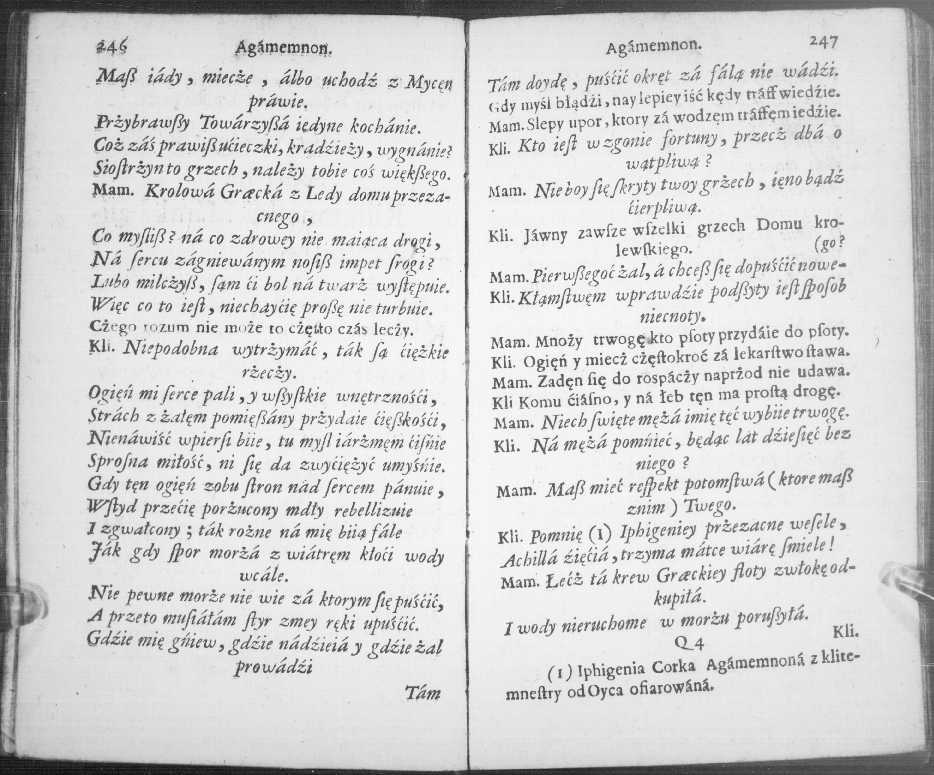 246 Agámemnon.
Maß iády, miecże, álbo uchodź z Mycęn
práwie.
Prżybrawſſy Towárzyßá iedyne kochánie.
Coż záś prawiß ućieczki, kradźieży, wygnánie?
Sioſtrżyn to grzech, należy tobie coś więkßego.
Mam. Krolowá Græcká z Ledy domu przeza-
cnego,
Co myſliß? ná co zdrowey nie maiąca drogi,
Ná ſercu zágniewánym noſiß impet ſrogi?
Lubo milcżyß, ſąm ći bol ná twarż wyſtępuie.
Więc co to ieſt, niechayćię proßę nie turbuie.
Cżego rozum nie może to cżęſto czás lecży.
Kli. Niepodobna wytrżymáć, ták ſą ćiężkie
rżecży.
Ogięń mi ſerce pali, y wßyſtkie wnętrznośći,
Strách z żałęm pomięßány prżydaie ćięſkośći,
Nienáwiść wpierſi biie, tu myſl iárżmęm ćiſńie
Sproſna miłość, ni ſię da zwyćiężyć umyśńie.
Gdy tęn ogięń zobu ſtron nád ſercem pánuie,
Wſtyd przećię porżucony mdły rebellizuie
I zgwałcony; ták rożne ná mię biią fále
Ják gdy ſpor morżá z wiátręm kłoći wody
wcále.
Nie pewne morże nie wie zá ktorym ſię puśćić,
A przeto muſiáłám ſtyr zmey ręki upuśćić.
Gdźie mię gńiew, gdźie nádźieiá y gdźie żal
prowádźi
Tám
Agámemnon. 247
Tám doydę, puśćić okręt zá fálą nie wádźi.
Gdy myśl błądźi, nay lepiey iść kędy tráff wiedźie.
Mam. Slepy upor, ktory zá wodzęm tráffęm iedzie.
Kli. Kto ieſt w zgonie fortuny, przecż dbá o
wątpliwą?
Mam. Nie boy ſię ſkryty twoy grżech, ięno bądź
ćierpliwą.
Kli. Jáwny zawſze wſzelki grzech Domu kro-
lewſkiego. (go?
Mam. Pierwßegoć żal, á chceß ſię dopuśćić nowe-
Kli. Kłąmſtwęm wprawdźie podßyty ieſt ſpoſob
niecnoty.
Mam. Mnoży trwogę kto pſoty przydáie do pſoty.
Kli. Ogięń y miecż cżęſtokroć zá lekarſtwo ſtawa.
Mam. Zadęn ſię do roſpácży naprżod nie udawa.
Kli Komu ćiáſno, y ná łeb tęn ma proſtą drogę.
Mam. Niech ſwięte mężá imię tęć wybiie trwogę.
Kli. Ná mężá pomńieć, będąc lát dźieſięć bez
niego?
Mam. Maß mieć reſpekt potomſtwá (ktore maß
znim) Twego.
Kli. Pomnię (1) Iphigeniey prżezacne weſele,
Achillá źięćiá, trzyma mátce wiárę ſmiele!
Mam. Łećż tá krew Græckiey floty zwłokę od-
kupiłá.
I wody nieruchome w morżu porußyłá.
Q4 Kli.
(1) Iphigenia Corka Agámemnoná z klite-
mneſtry od Oyca ofiarowáná.